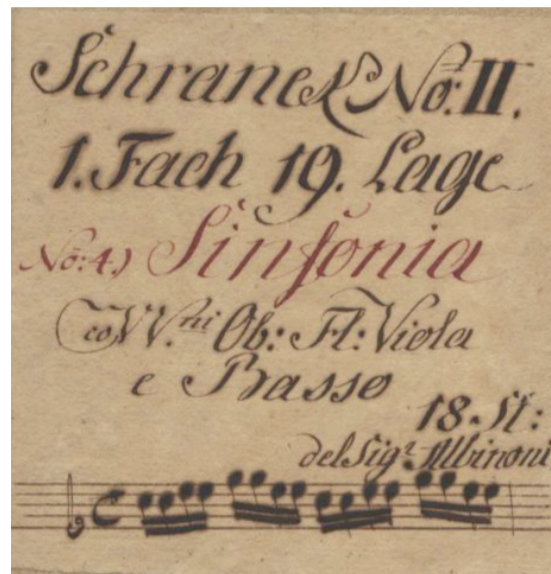 Schranck No: II.
1. Fach 19. Lage
No: 4.) Sinfonia
co VV.ni Ob: Fl: Viola
e Basso
18. St:
del Sigr. Albinoni